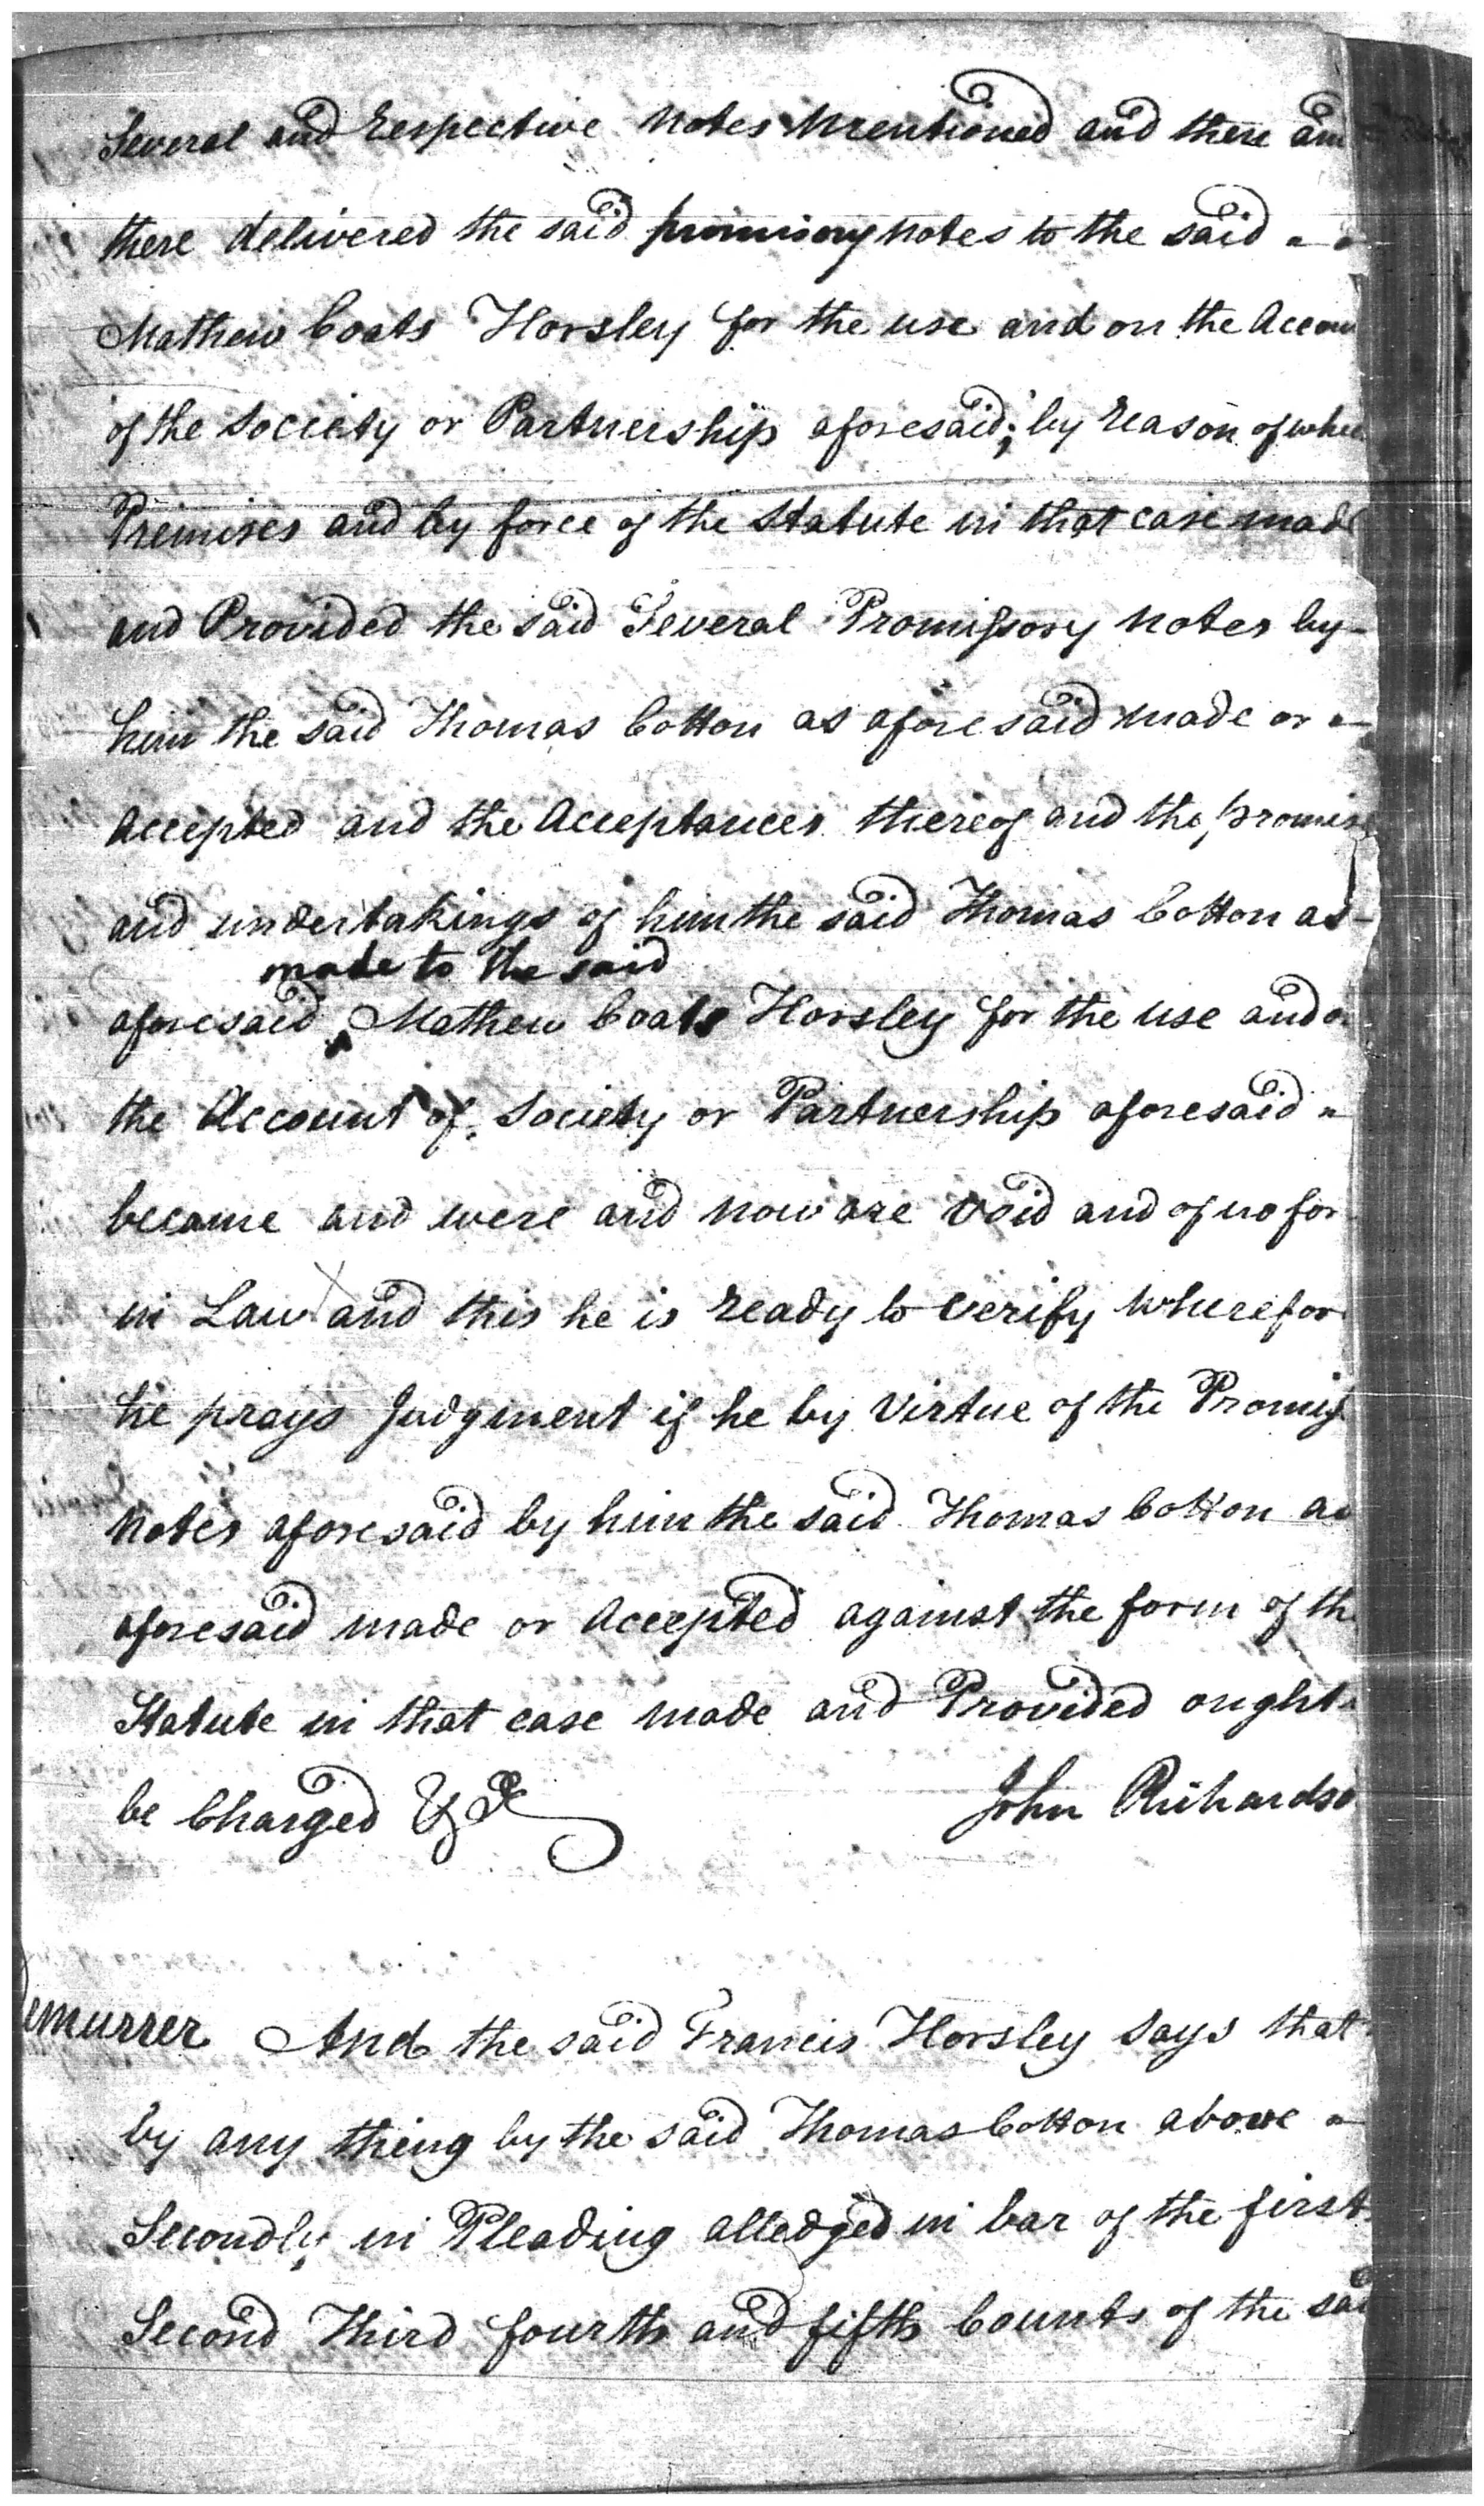 Several and Respective Notes Mentioned and there an
there delivered the said promisory Notes to the said
Mathew Coats Horsley for the use and on the Accoun
of the Society or Partnership aforesaid; by Reason of whi
Premises and by force of the Statute in that case made
and Provided the said Several Promissory Notes by
him the said Thomas Cotton as aforesaid made or
Accepted and the Acceptances thereof and the promise
and undertakings of him the said Thomas Cotton as
made to the said
aforesaid ^ Mathew Coats Horsley for the use and o
the Account of Society or Partnership aforesaid
became and were and now are Void and of no for
in Law and this he is ready to Verify Wherefor
he prays Judgment if he by Virtue of the Promiss
Notes aforesaid by him the said Thomas Cotton as
aforesaid made or Accepted against the form of th
Statute in that case made and Provided ought
be Charged &c
John Richardso
emurrer And the said Francis Horsley says that
by any thing by the said Thomas Cotton above
Secondly in Pleading alledged in bar of the first
Second Third fourth and fifth Counts of the sai